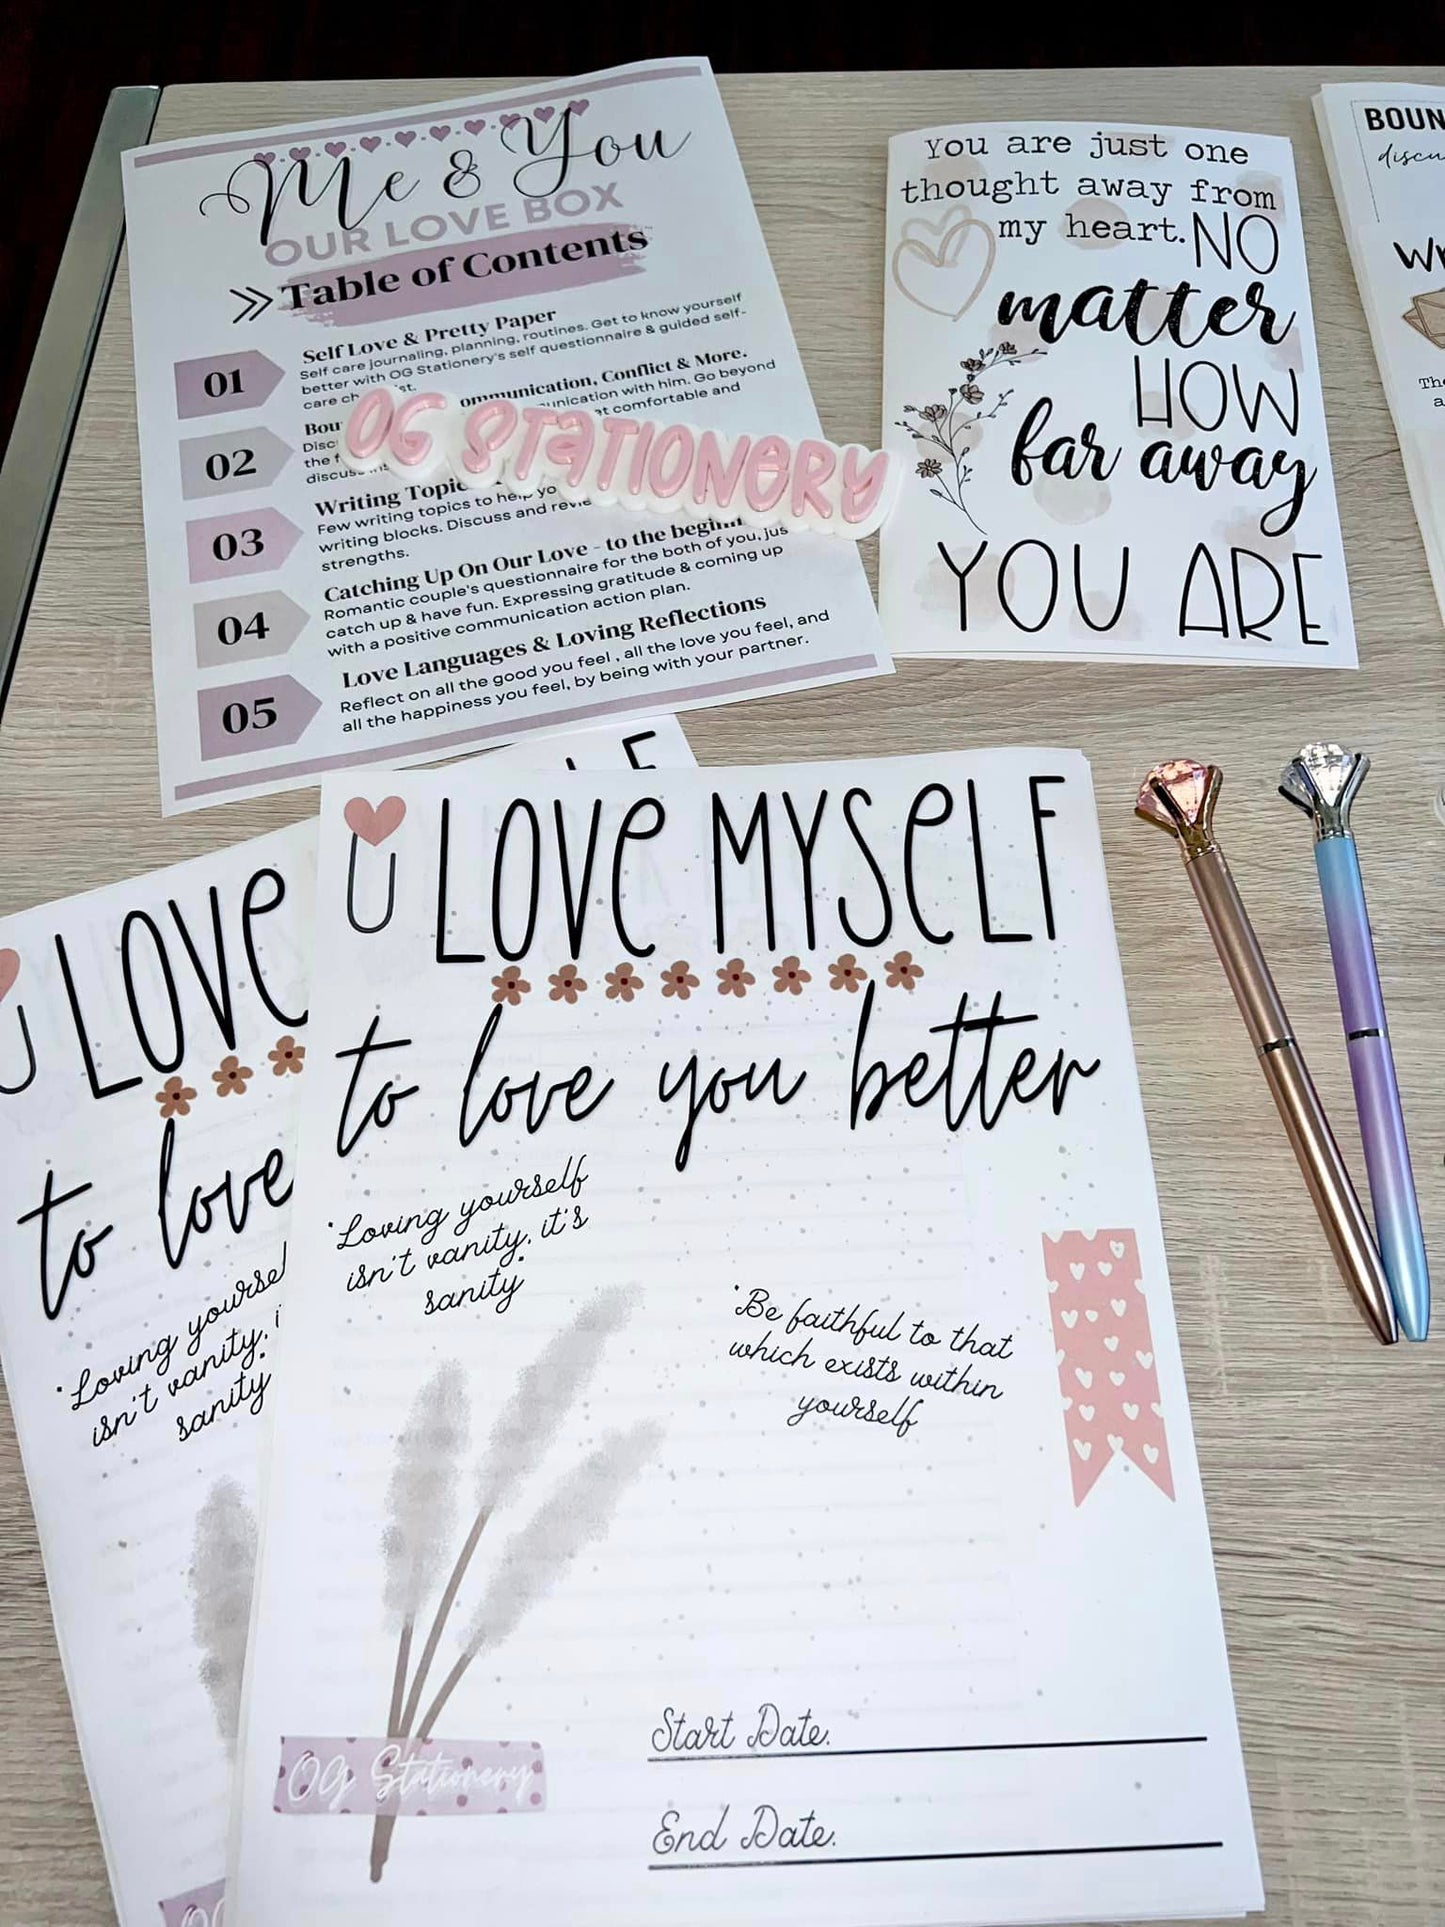 Me & You
OUR LOVE BOX
Table of Contents
01
Self Love & Pretty Paper
Self care journaling, planning, routines. Get to know yourself
better with OG Stationery's self questionnaire & guided self-
care
02
Communication, Conflict & More.
with him. Go beyond
the
comfortable and
OG STATIONERY
03
Writing
Few writing topics to help
writing blocks. Discuss and
strengths.
04
Catching Up On Our Love - to the
Romantic couple's questionnaire for the both of you, jus
catch up & have fun. Expressing gratitude & coming up
with a positive communication action plan.
05
Love Languages & Loving Reflections
Reflect on all the good you feel , all the love you feel, and
all the happiness you feel, by being with your partner.
You are just one
thought away from
my heart. NO
matter
HOW
far away
YOU ARE
BOUN
LOVE MYSELF
to love you better
"Loving yourself
isn't vanity, it's
sanity"
"Be faithful to that
which exists within
yourself
OG Stationery
Start Date:
End Date:
LOVE
to love
"Loving
isn't vanity,
sanity"